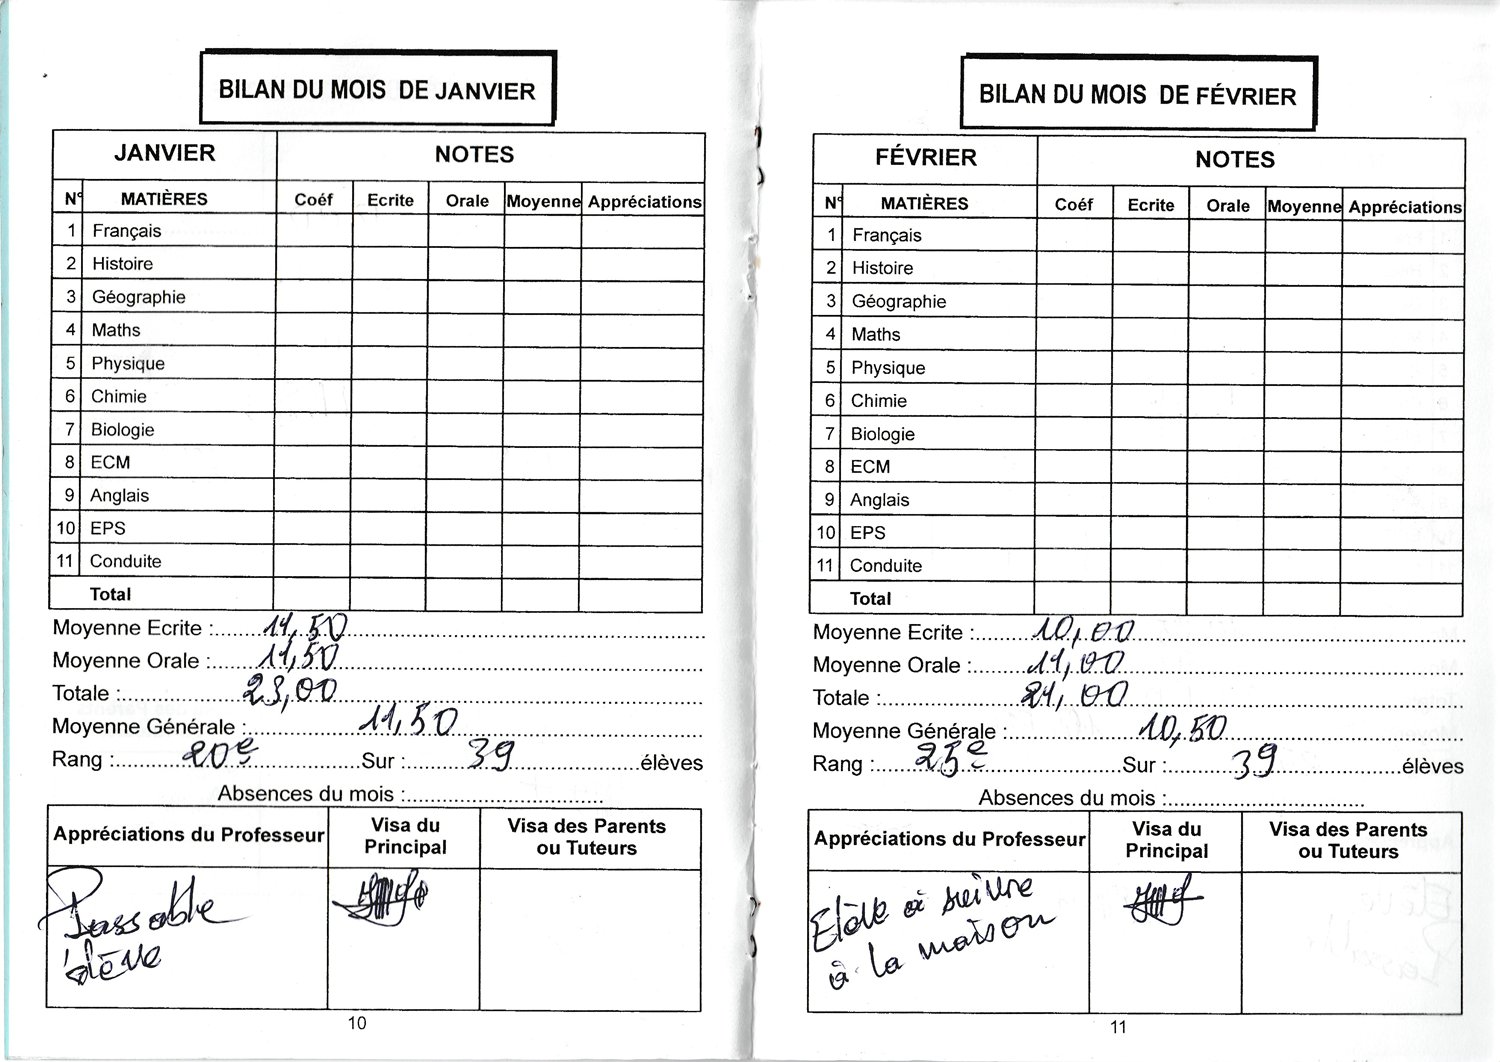 BILAN DU MOIS DE JANVIER
JANVIER NOTES
N° MATIÈRES Coéf Ecrite Orale Moyenne Appréciations
1 Français
2 Histoire
3 Géographie
4 Maths
5 Physique
6 Chimie
7 Biologie
8 ECM
9 Anglais
10 EPS
11 Conduite
Total
Moyenne Ecrite : 11,50
Moyenne Orale : 11,50
Totale : 23,00
Moyenne Générale : 11,50
Rang : 20e Sur : 39 élèves
Absences du mois :
Appréciations du Professeur Visa du Principal Visa des Parents ou Tuteurs
Passable
élève
10
BILAN DU MOIS DE FÉVRIER
FÉVRIER NOTES
N° MATIÈRES Coéf Ecrite Orale Moyenne Appréciations
1 Français
2 Histoire
3 Géographie
4 Maths
5 Physique
6 Chimie
7 Biologie
8 ECM
9 Anglais
10 EPS
11 Conduite
Total
Moyenne Ecrite : 10,00
Moyenne Orale : 11,00
Totale : 21,00
Moyenne Générale : 10,50
Rang : 25e Sur : 39 élèves
Absences du mois :
Appréciations du Professeur Visa du Principal Visa des Parents ou Tuteurs
Elève à suivre
à la maison
11